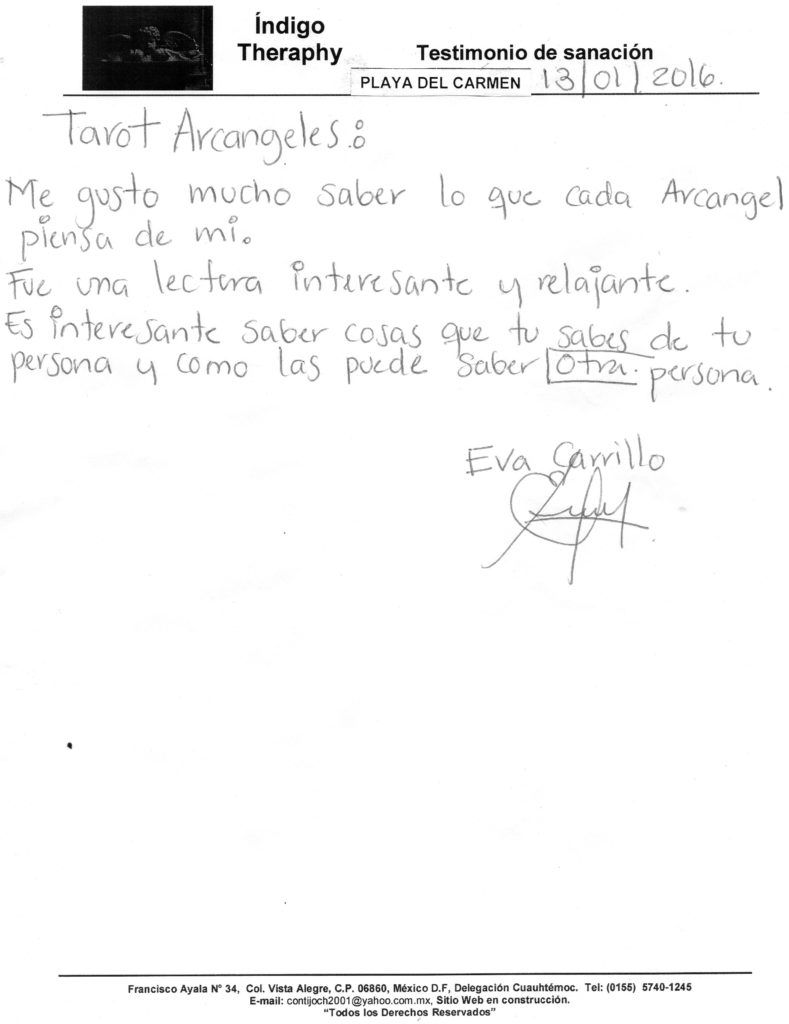 Índigo
Theraphy
Testimonio de sanación
PLAYA DEL CARMEN 13/01/2016.
Tarot Arcangeles:
Me gusto mucho saber lo que cada Arcangel
piensa de mi.
Fue una lectura interesante y relajante.
Es interesante saber cosas que tu sabes de tu
persona y como las puede saber otra persona.
Eva Carrillo
Francisco Ayala N° 34, Col. Vista Alegre, C.P. 06860, México D.F, Delegación Cuauhtémoc. Tel: (0155) 5740-1245
E-mail: contijoch2001@yahoo.com.mx, Sitio Web en construcción.
"Todos los Derechos Reservados"